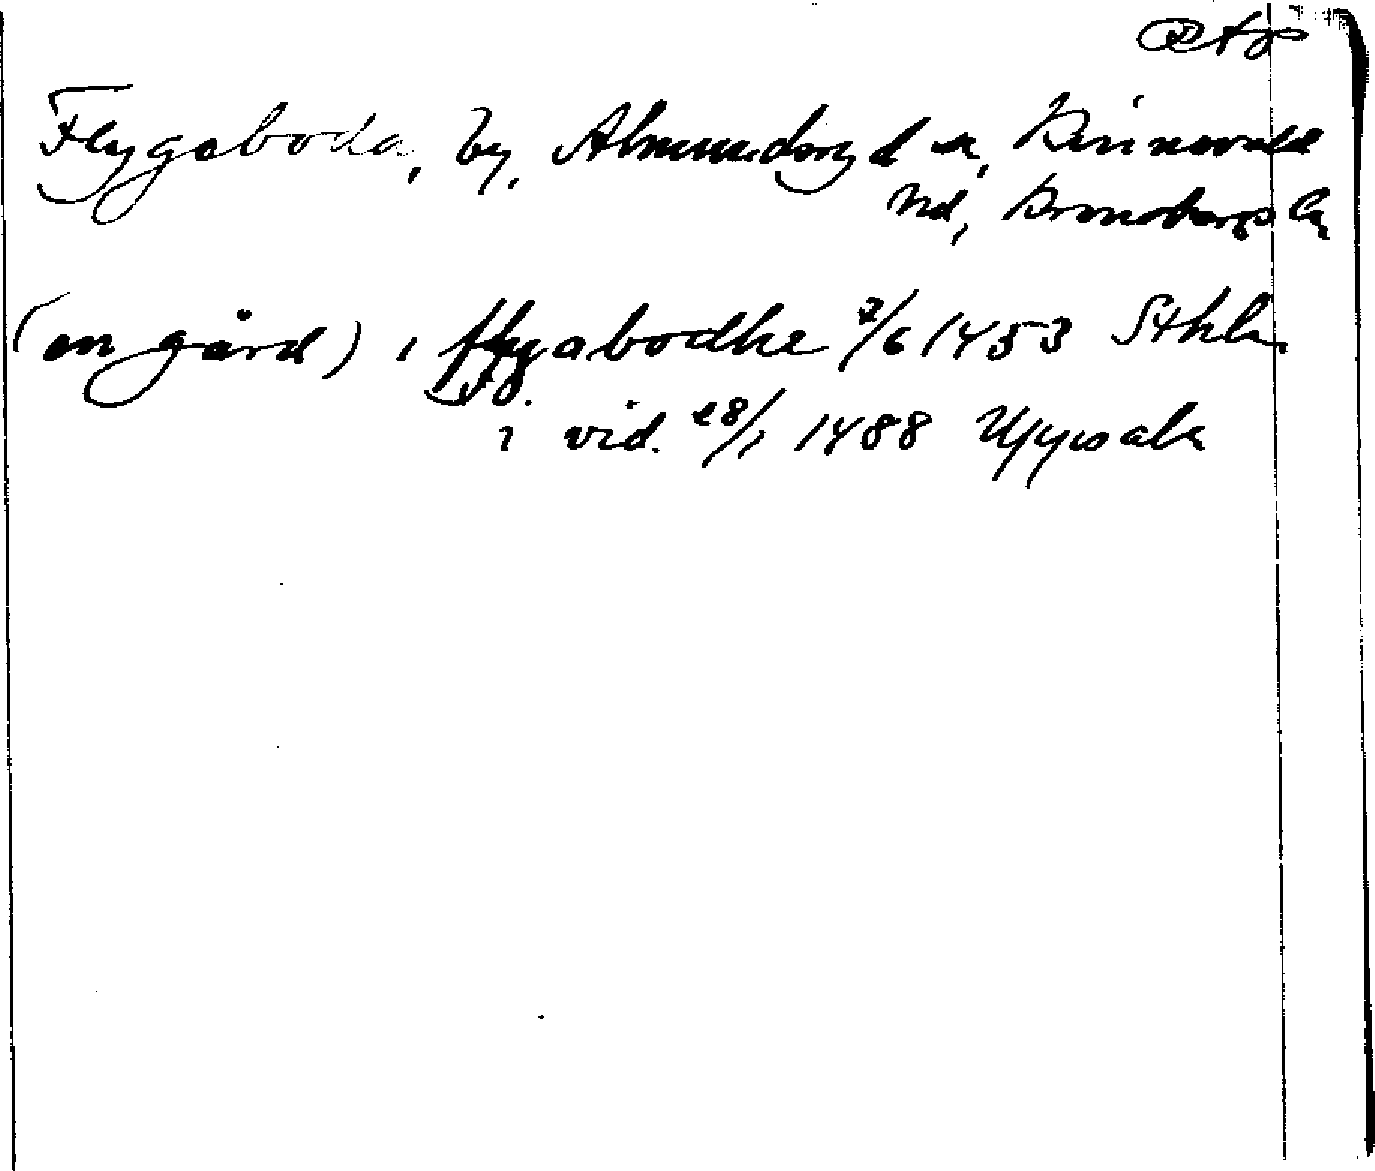 Flygaboda, by, Almundsryd sn, Kinnevald
hd, Kronobergs län
(en gård) i fflygabodhe 2/6 1453 Sthlm
i vid. 28/1 1488 Uppsala